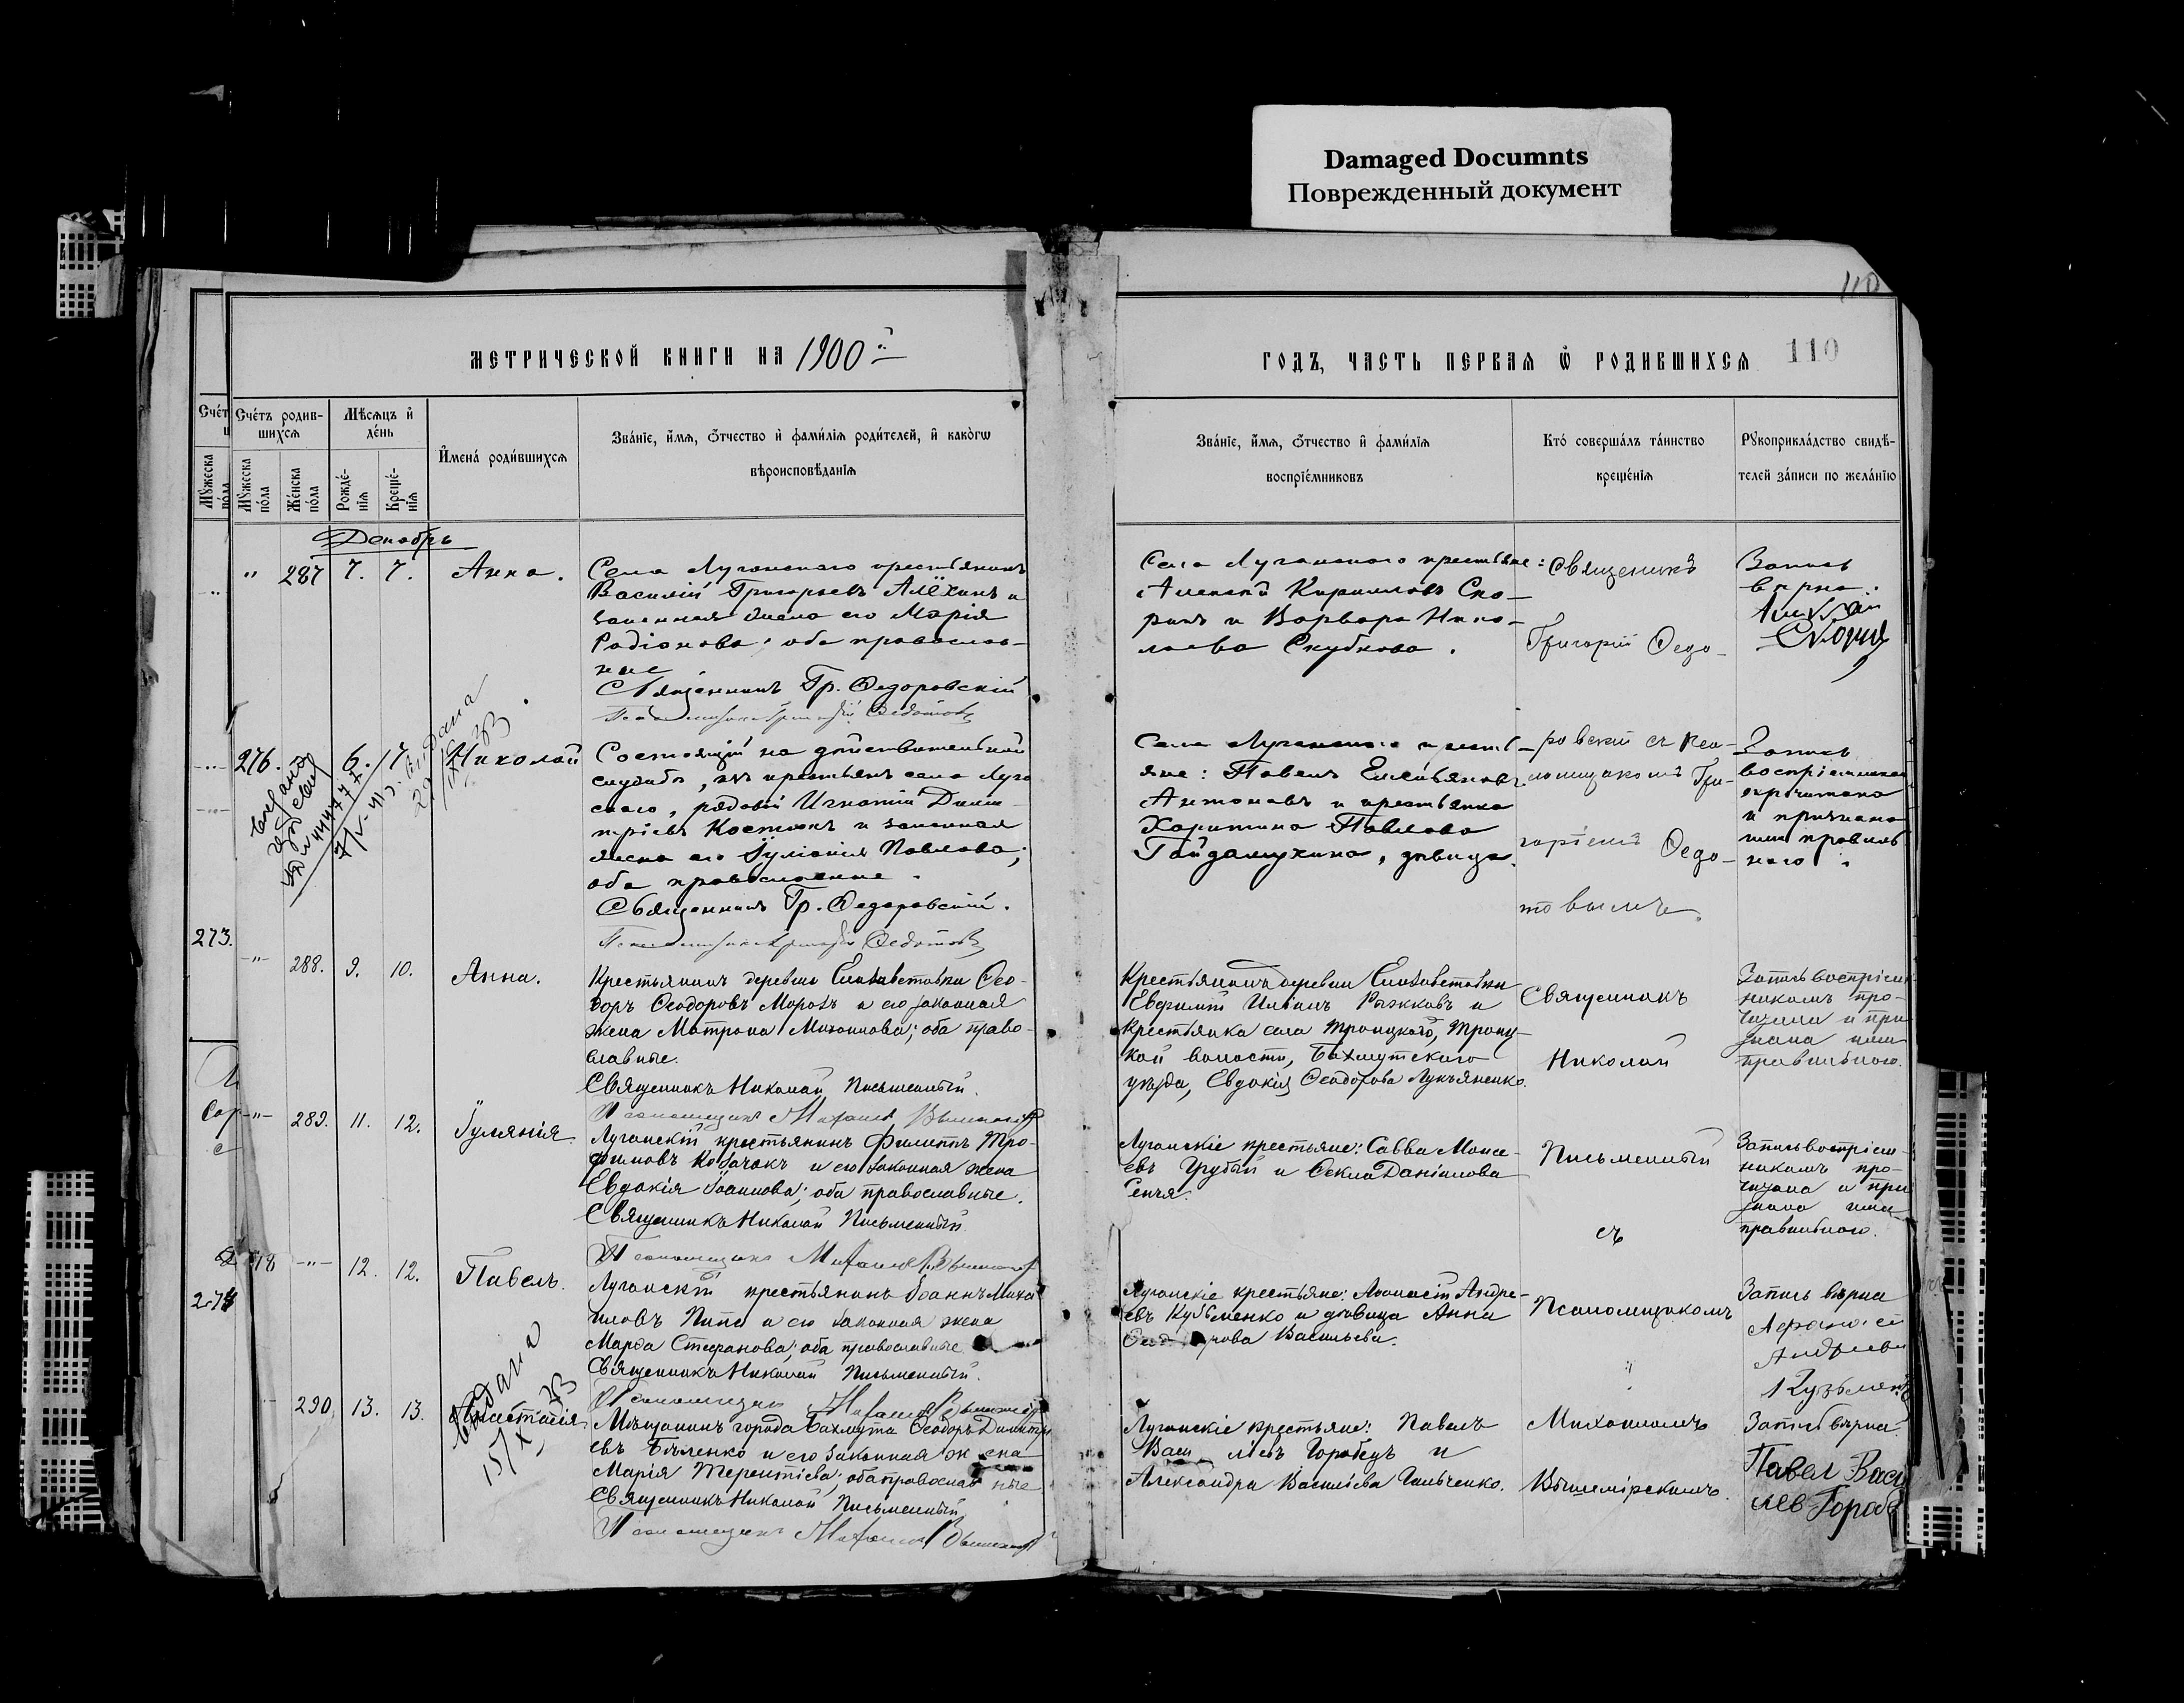 Damaged Documnts
Поврежденный документ
110
МЕТРИЧЕСКОЙ КНИГИ НА 1900й
ГОДЪ, ЧАСТЬ ПЕРВАЯ Ѿ РОДИВШИХСЯ 110
Счетъ родив-
шихся
Мѣсяцъ и
день
Имена родившихся
Званіе, имя, отчество и фамилія родителей, и какогѡ
вѣроисповѣданія
Мужеска пола
Женска пола
Рожде-
нія
Креще-
нія
Званіе, имя, отчество и фамилія
воспріемниковъ
Кто совершалъ таинство
крещенія
Рукоприкладство свидѣ-
телей записи по желанію
Декабрь
" 287 7. 7. Анна.
Села Луганскаго крестьянинъ
Василій Григорьевъ Алёхинъ и
законная жена его Марія
Родіонова; оба православ-
ные
Священникъ Гр. Федоровскій
Села Луганскаго крестьяне:
Алексѣй Кирилловъ Ско-
рикъ и Варвара Нико-
лаева Скубкова.
Священникъ
Григорій Ѳедо-
Запись
вѣрна.
276. 6. 17. Николай
Состоящій на дѣйствительной
службѣ, изъ крестьянъ села Луга
скаго, рядовой Игнатій Дими-
тріевъ Костюкъ и законная
жена его Іуліанія Павлова;
оба православные.
Священникъ Гр. Федоровскій.
Села Луганскаго крестья-
яне: Павелъ Емельяновъ
Антоновъ и крестьянка
Харитина Павлова
Гайдамукина, дѣвица.
ровскій съ Пса-
ломщикомъ Гри-
горіемъ Ѳедо-
товымъ.
Запись
воспріемникамъ
прочитана
и признана
ими правиль
ною.
273.
-"- 288. 9. 10. Анна.
Крестьянинъ деревни Елизаветовки Ѳео-
доръ Ѳеодоровъ Морозъ и его законная
жена Матрона Михаилова; оба право-
славные.
Священникъ Николай Письменный.
Крестьянинъ деревни Елизаветовки
Евфимій Ильинъ Рыжковъ и
крестьянка села Троицкаго, Троиц-
кой волости, Бахмутскаго
уѣзда, Евдокія Ѳеодорова Лукьяненко.
Священникъ
Николай
Запись воспріем-
никамъ про-
читана и при
знана ими
правильною.
-"- 289. 11. 12. Іуліанія.
Луганскій крестьянинъ Филиппъ Тро-
фимовъ Козачокъ и его законная жена
Евдокія Іоаннова; оба православные.
Священникъ Николай Письменный
Луганскіе крестьяне: Савва Моисе-
евъ Грубый и Ѳекла Даніилова
Письменный
съ
Запись воспріем-
никамъ про-
читана и при
знана ими
правильною.
-"- 12. 12. Павелъ.
Луганскій крестьянинъ Іоаннъ Миха
иловъ Пипа и его законная жена
Марѳа Стефанова; оба православные
Священникъ Николай Письменный.
Луганскіе крестьяне: Аѳанасій Андре-
евъ Кузьменко и дѣвица Анна
Ѳеодорова Васильева.
Псаломщикомъ
Запись вѣрна
Андреевъ
Кузьменко
274
290 13. 13. Анастасія
Мѣщанинъ города Бахмута Ѳеодоръ Димитрі
евъ Бѣленко и его законная жена
Марія Терентіева; оба православные
Священникъ Николай Письменный
Луганскіе крестьяне: Павелъ
Васильевъ Горобецъ и
Александра Васильева Ильченко.
Михаиломъ
Вышемірскимъ.
Запись вѣрна.
Павел Васи
лев Гороб
выдана
15/X